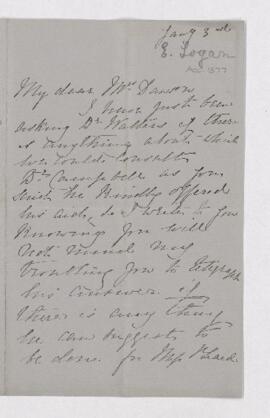 Jany 3rd
E. Logan
My dear Mrs Dawson
I have just been
asking Dr Walters if there
is anything about which
we could consult
Dr Campbell as you
said he kindly offered
his aid, so I write to you
knowing you will
not mind my
troubling you to telegraph
his answer if
there is any thing
he can suggest to
be done for Miss